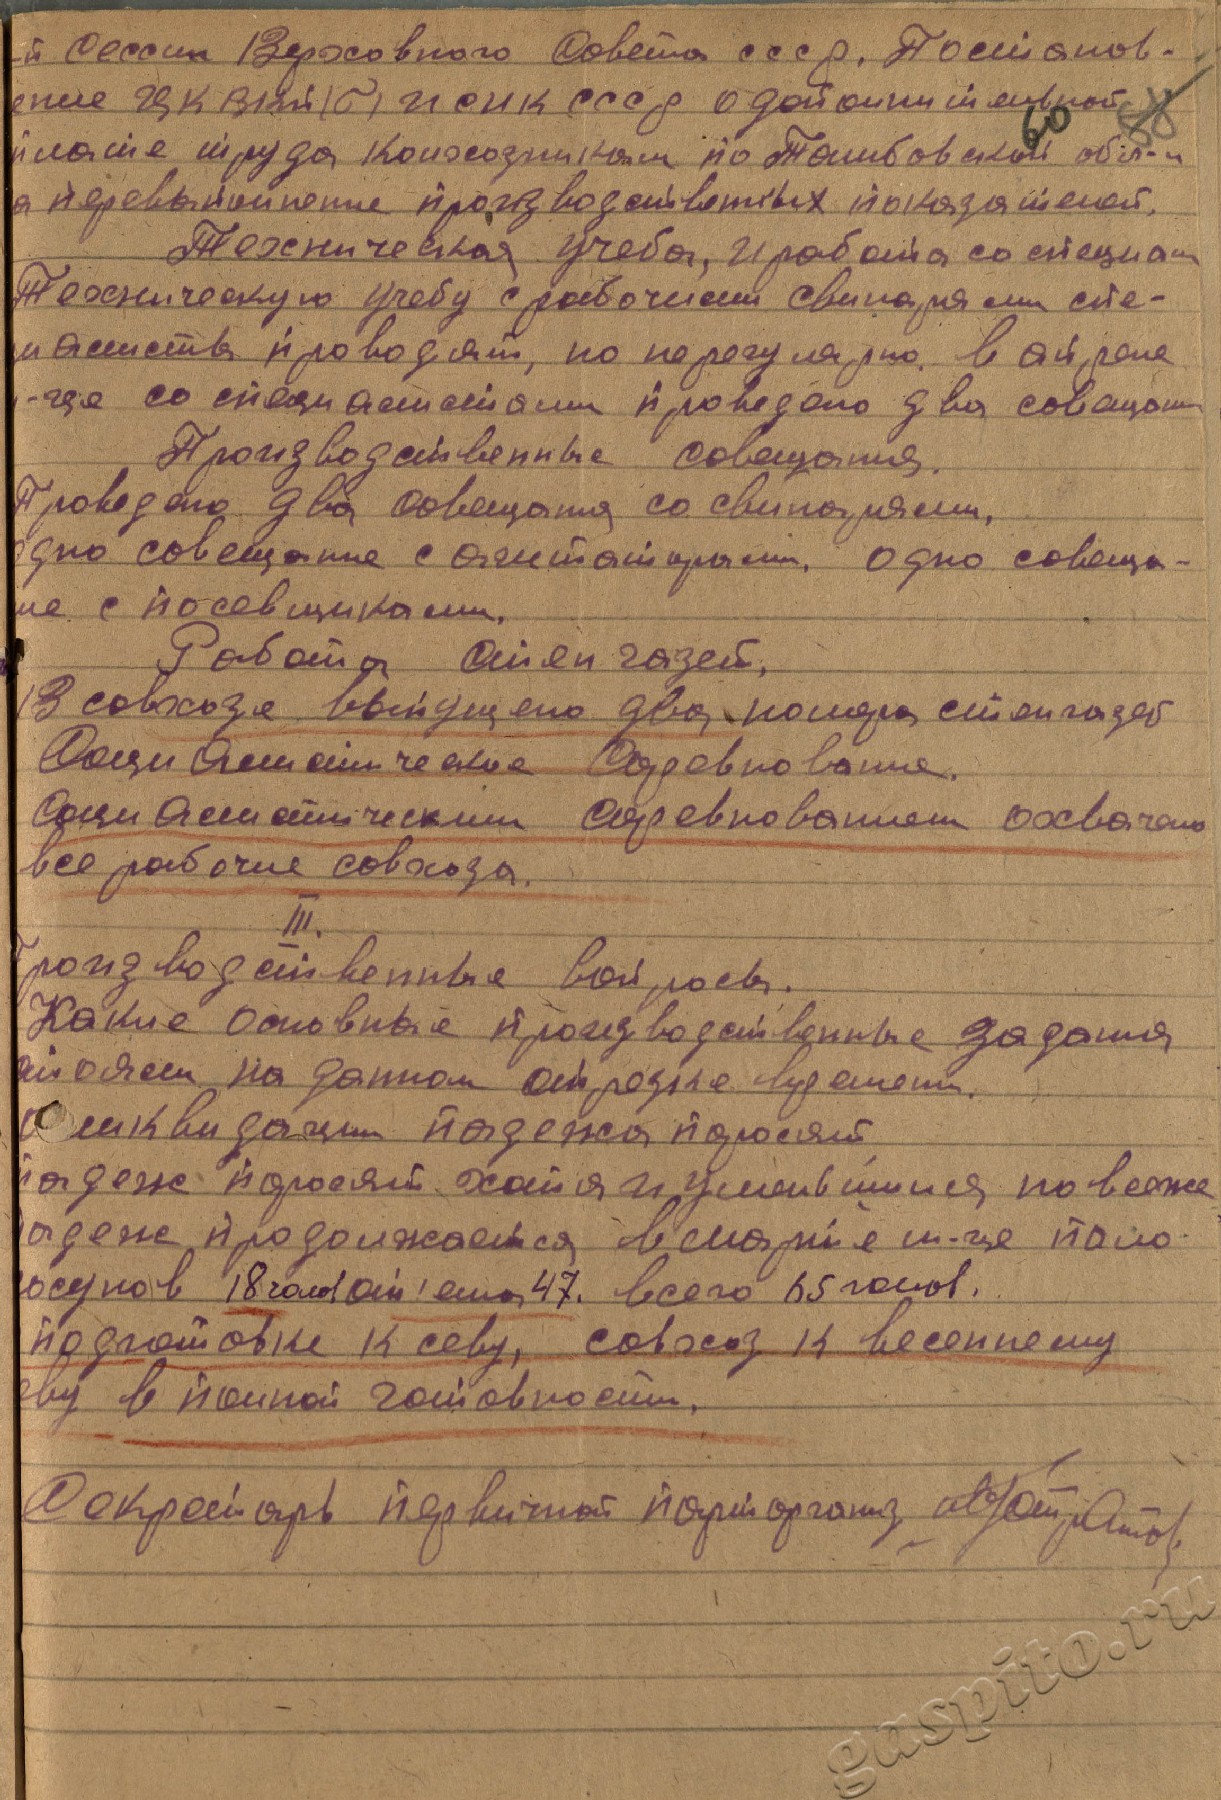 -й Сессии Верховного Совета СССР. Постанов-
ение ЦК ВКП(б) и СНК СССР о дополнительной
60
плате труда колхозникам по Тамбовской обл-и
а перевыполнение производственных показателей.
Техническая учеба, и работа со специал
Техническую учебу с рабочими свинарями спе-
циалисты проводят, но нерегулярно. в апреле
-це со специалистами проведено два совещани
Производственные совещания.
Проведено два совещания со свинарями,
одно совещание с агитаторами. одно совеща-
ние с посевщиками.
Работа стен газет.
В совхозе выпущено два номера стенгазет
Социалистическое Соревнование.
Социалистическим Соревнованием охвачено
все рабочие совхоза.
III.
Производственные вопросы.
Какие основные производственные задания
стояли на данном отрезке времени.
О ликвидации падежа поросят
падеж поросят хотя и уменьшился но все же
падеж продолжается в марте м-це пало
сосунов 18 голов 47. всего 65 голов.
подготовке к севу, совхоз к весеннему
еву в полной готовности.
Секретарь первичной парторганиз
gaspito.ru